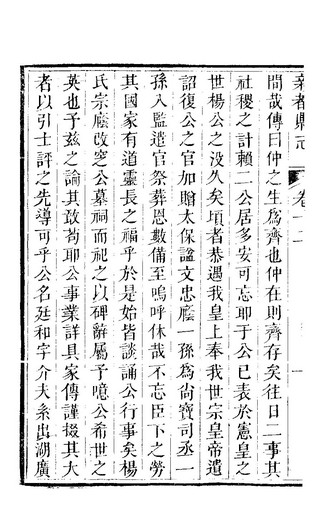 新都縣志
卷十二
間哉傳曰仲之生爲齊也仲在則齊存矣往日二事其
社稷之計賴二公居多安可忘耶于公已表於憲皇之
世楊公之没久矣頃者恭遇我皇上奉我世宗皇帝遺
詔復公之官加贈太保諡文忠廕一孫爲尚寶司丞一
孫入監遣官祭葬恩數備至嗚呼休哉不忘臣下之勞
其國家有道靈長之福乎於是始皆談誦公行事矣楊
氏宗廕改窆公墓祠而祀之以碑辭屬予噫公希世之
英也予兹之論其敢苟耶公事業詳具家傳謹掇其大
者以引士評之先導可乎公名廷和字介夫系出湖廣